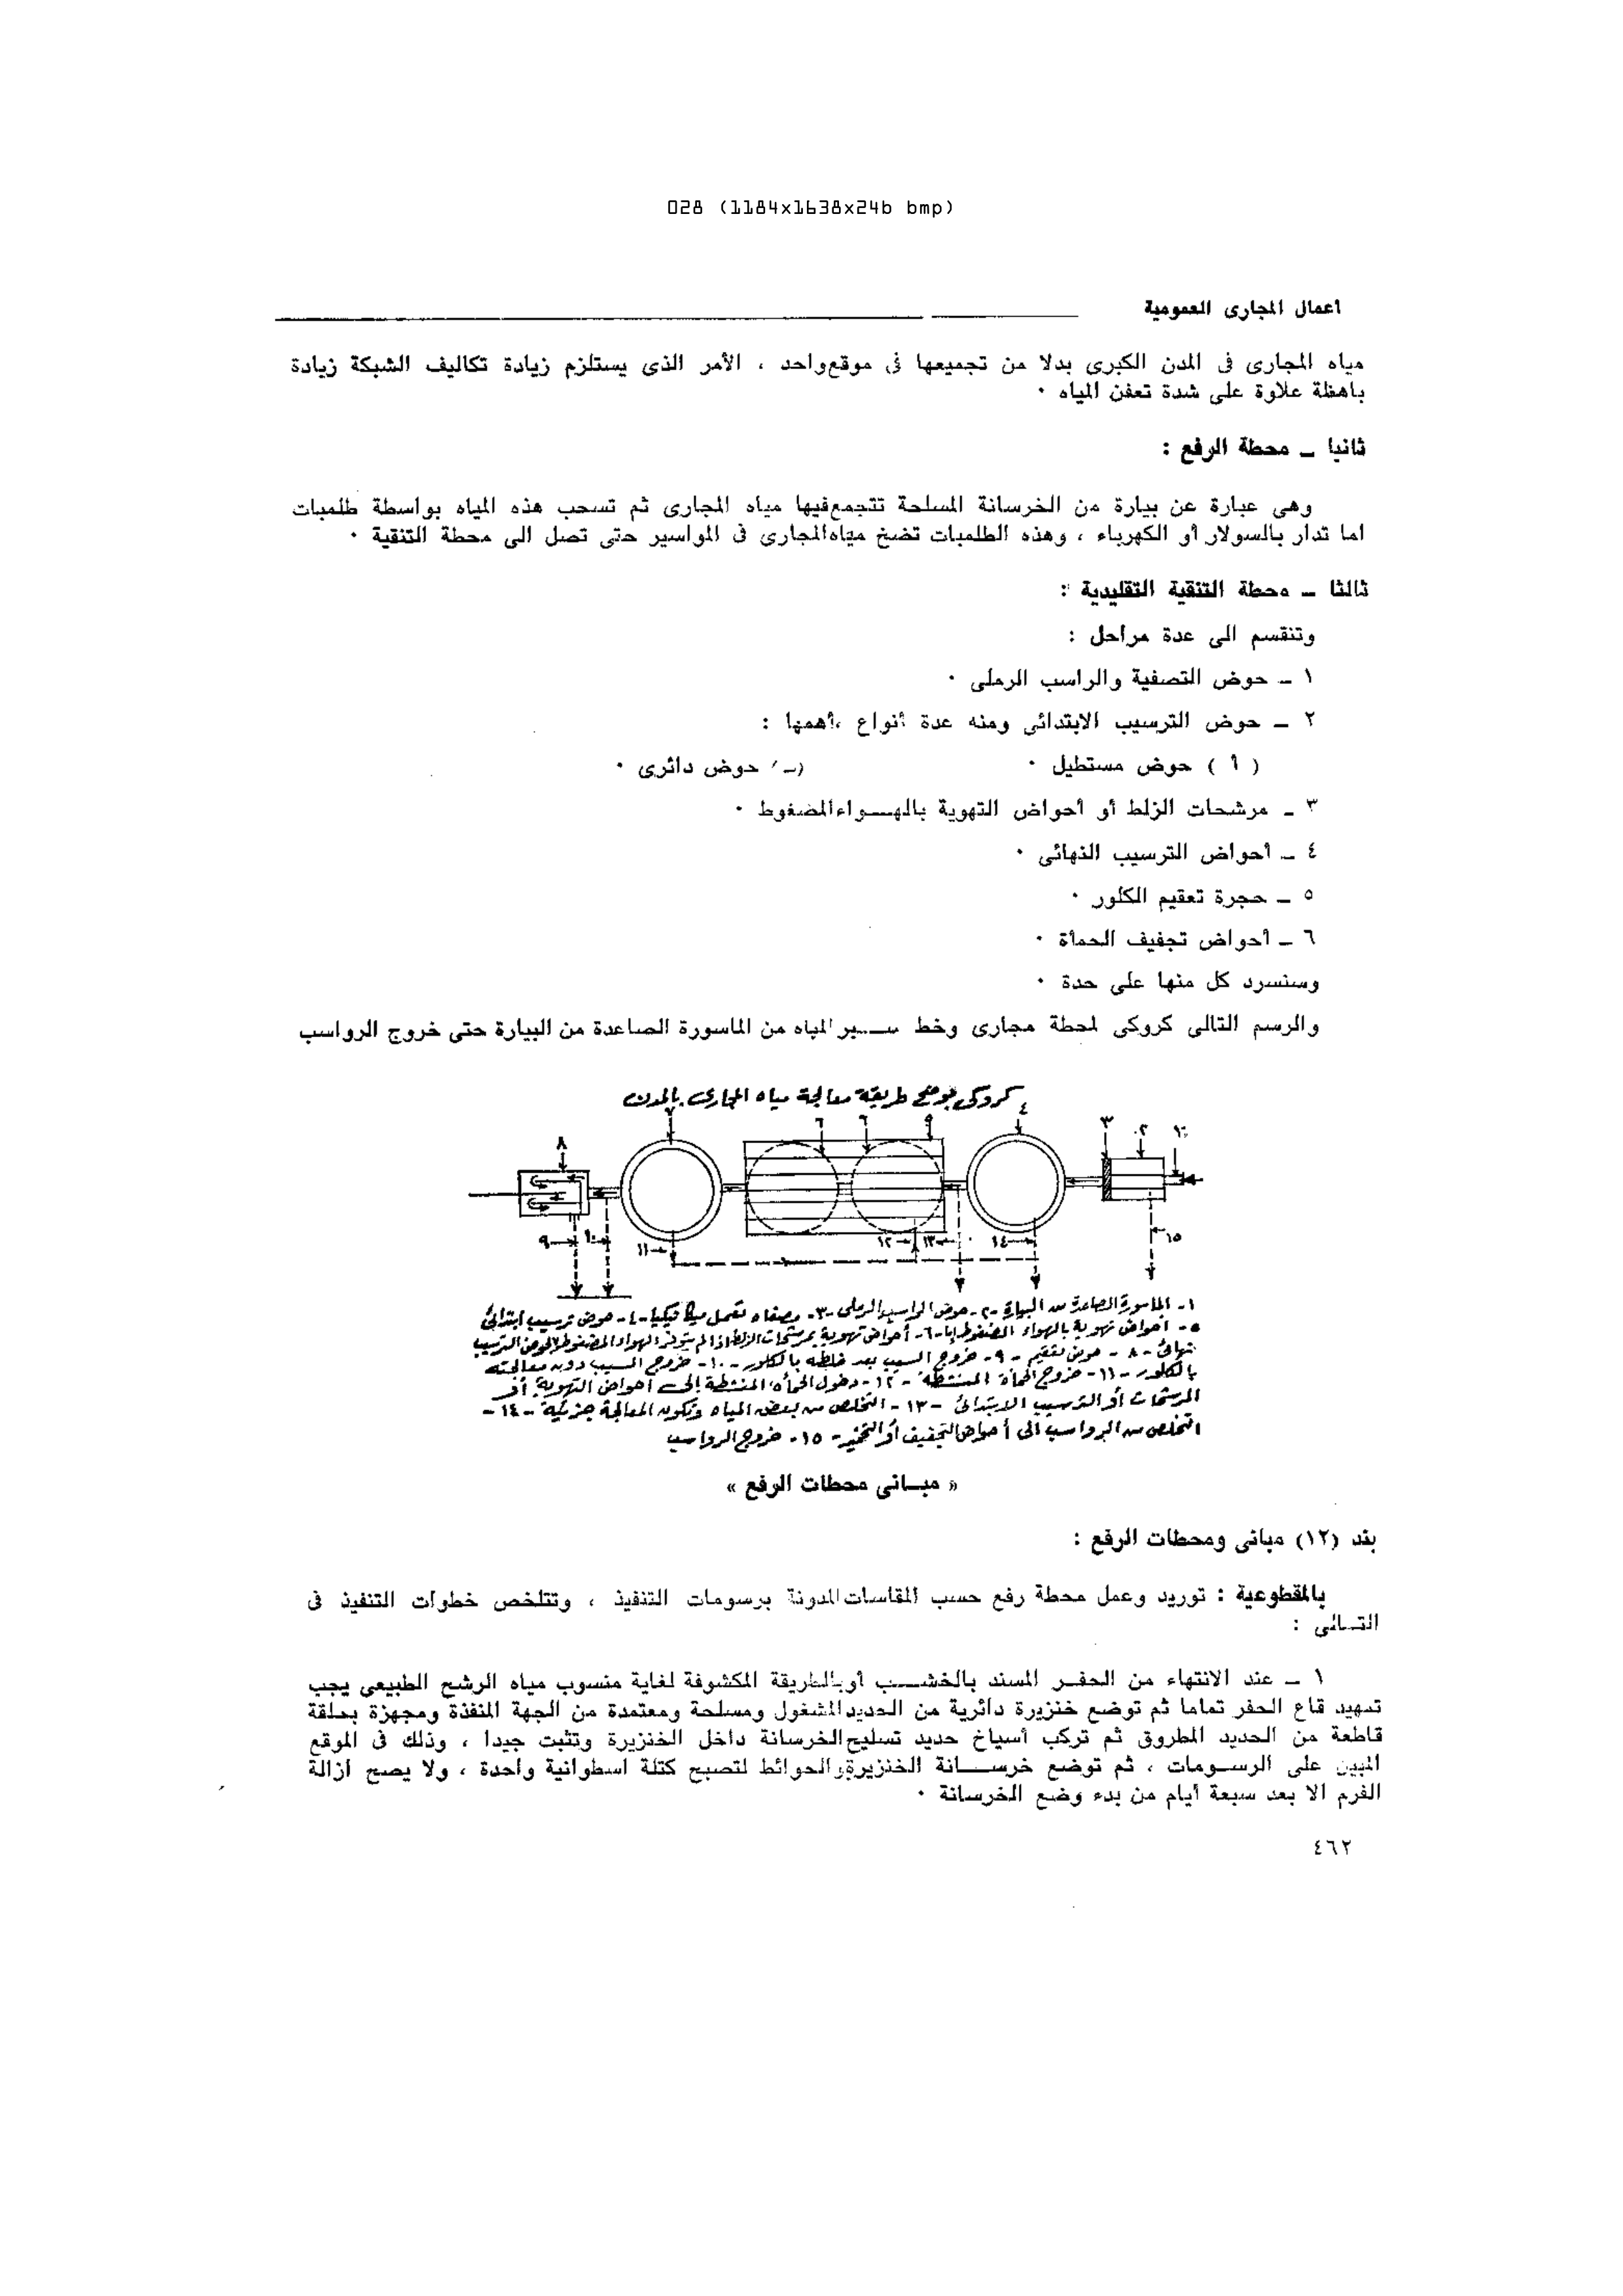 028 (1184x1638x24b bmp)
اعمال المجارى العمومية
مياه المجارى فى المدن الكبرى بدلا من تجميعها فى موقع واحد ، الأمر الذى يستلزم زيادة تكاليف الشبكة زيادة
باهظة علاوة على شدة تعفن المياه ٠
ثانيا ــ محطة الرفع :
وهى عبارة عن بيارة من الخرسانة المسلحة تتجمع فيها مياه المجارى ثم تسحب هذه المياه بواسطة طلمبات
اما تدار بالسولار أو الكهرباء ، وهذه الطلمبات تضخ مياه المجارى فى المواسير حتى تصل الى محطة التنقية ٠
ثالثا ــ محطة التنقية التقليدية :
وتنقسم الى عدة مراحل :
١ ــ حوض التصفية والراسب الرملى ٠
٢ ــ حوض الترسيب الابتدائى ومنه عدة أنواع ،أهمها :
( أ ) حوض مستطيل ٠ حوض دائرى ٠
٣ ــ مرشحات الزلط أو أحواض التهوية بالهـــواء المضغوط ٠
٤ ــ أحواض الترسيب النهائى ٠
٥ ــ حجرة تعقيم الكلور ٠
٦ ــ أحواض تجفيف الحمأة ٠
وسنسرد كل منها على حدة ٠
والرسم التالى كروكى لمحطة مجارى وخط ســير المياه من الماسورة الصاعدة من البيارة حتى خروج الرواسب
كروكى يوضح طريقة معالجة مياه المجارى بالمدن
٨ ٧ ٦ ٦ ٤ ٣ ٢
٩ ١٠ ١١ ١٢ ١٣ ١٤ ١٥
١- الماسورة الصاعدة من البيارة -٢- حوض الراسب الرملى -٣- مصفاه تعمل ميكانيكيا -٤- حوض ترسيب ابتدائى
٥- أحواض تهوية بالهواء المضغوط -٦- أحواض تهوية بمرشحات الزلط إذا لم يتوفر الهواء المضغوط الترسيب
نهائى -٨- حوض تعقيم -٩- خروج السيب بعد خلطه بالكلور -١٠- خروج السيب دون معالجته
بالكلور -١١- خروج الحمأة المنشطة -١٢- دخول الحمأة المنشطة إلى أحواض التهوية أو
المرشحات أو الترسيب الابتدائى -١٣- التخلص من بعض المياه وتكون المعالجة جزئية -١٤-
التخلص من الرواسب الى أحواض التجفيف أو التخمير -١٥- خروج الرواسب
« مبــانى محطات الرفع »
بند (١٢) مبانى ومحطات الرفع :
بالمقطوعية : توريد وعمل محطة رفع حسب المقاسات المدونة برسومات التنفيذ ، وتتلخص خطوات التنفيذ فى
التــالى :
١ ــ عند الانتهاء من الحفــر المسند بالخشـــب أو بالطريقة المكشوفة لغاية منسوب مياه الرشح الطبيعى يجب
تمهيد قاع الحفر تماما ثم توضع خنزيرة دائرية من الحديد المشغول ومسلحة ومعتمدة من الجهة المنفذة ومجهزة بحلقة
قاطعة من الحديد المطروق ثم تركب أسياخ حديد تسليح الخرسانة داخل الخنزيرة وتثبت جيدا ، وذلك فى الموقع
المبين على الرســومات ، ثم توضع خرســـانة الخنزيرة والحوائط لتصبح كتلة اسطوانية واحدة ، ولا يصح ازالة
الفرم الا بعد سبعة أيام من بدء وضع الخرسانة ٠
٤٦٢